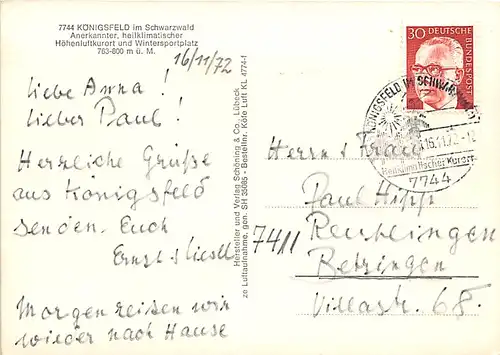 7744 KÖNIGSFELD im Schwarzwald
Anerkannter, heilklimatischer
Höhenluftkurort und Wintersportplatz
763-800 m ü. M.
16/11/72
Liebe Anna!
Lieber Paul!
Herzliche Grüße
aus Königsfeld
senden. Euch
Ernst + Liesll
Morgen reisen wir
wieder nach Hause
Hersteller und Verlag Schöning & Co., Lübeck
ze Luftaufnahme, gen. SH 350/85 - Bestellnr. Köfe Luft KL 4774-1
30 DEUTSCHE
BUNDESPOST
KÖNIGSFELD IM SCHWARZWALD
16.11.72-12
Heilklimatischer Kurort
7744
Herrn + Frau
Paul Hipp
7411 Reutlingen
Betzingen
Villastr. 68.